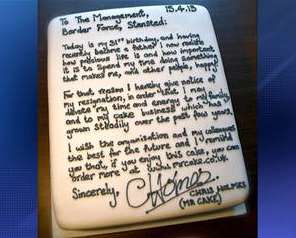 To The Management,
15.4.13
Border Force, Stansted:
Today is my 31st birthday, and having
recently become a father I now realise
how precious life is and how important
it is to spend my time doing something
that makes me, and other people, happy.
For that reason I hereby give notice of
my resignation, in order that I may
devote my time and energy to my family
and to my cake business which has
grown steadily over the past few years.
I wish the organisation and my colleagues
the best for the future and I remind
you that, if you enjoy this cake, you can
order more at www.mrcake.co.uk.
Sincerely,
CHolmes
CHRIS HOLMES
(MR CAKE)